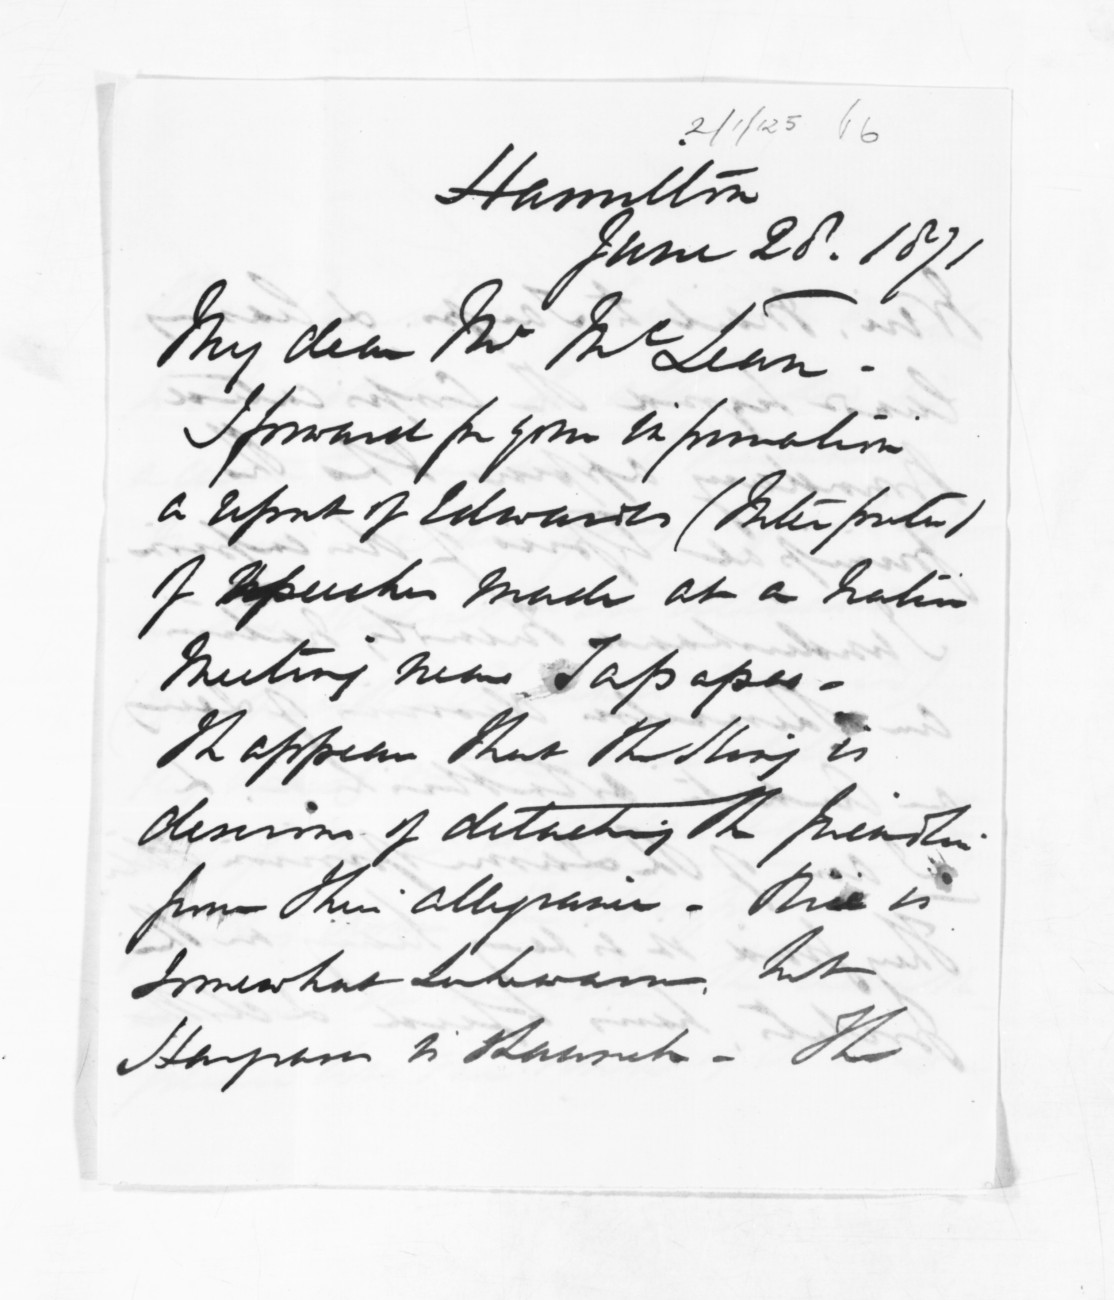 2/1/125 16
Hamilton
June 28. 1871
My dear Mr McLean -
I forward for your information
a report of Edwards (Interpreter)
of speeches made at a Native
Meeting near Tapapa -
It appears that the King is
desirous of detaching the friendlies
from their allegiance - is
somewhat lukewarm, but
Hauraki is staunch - The